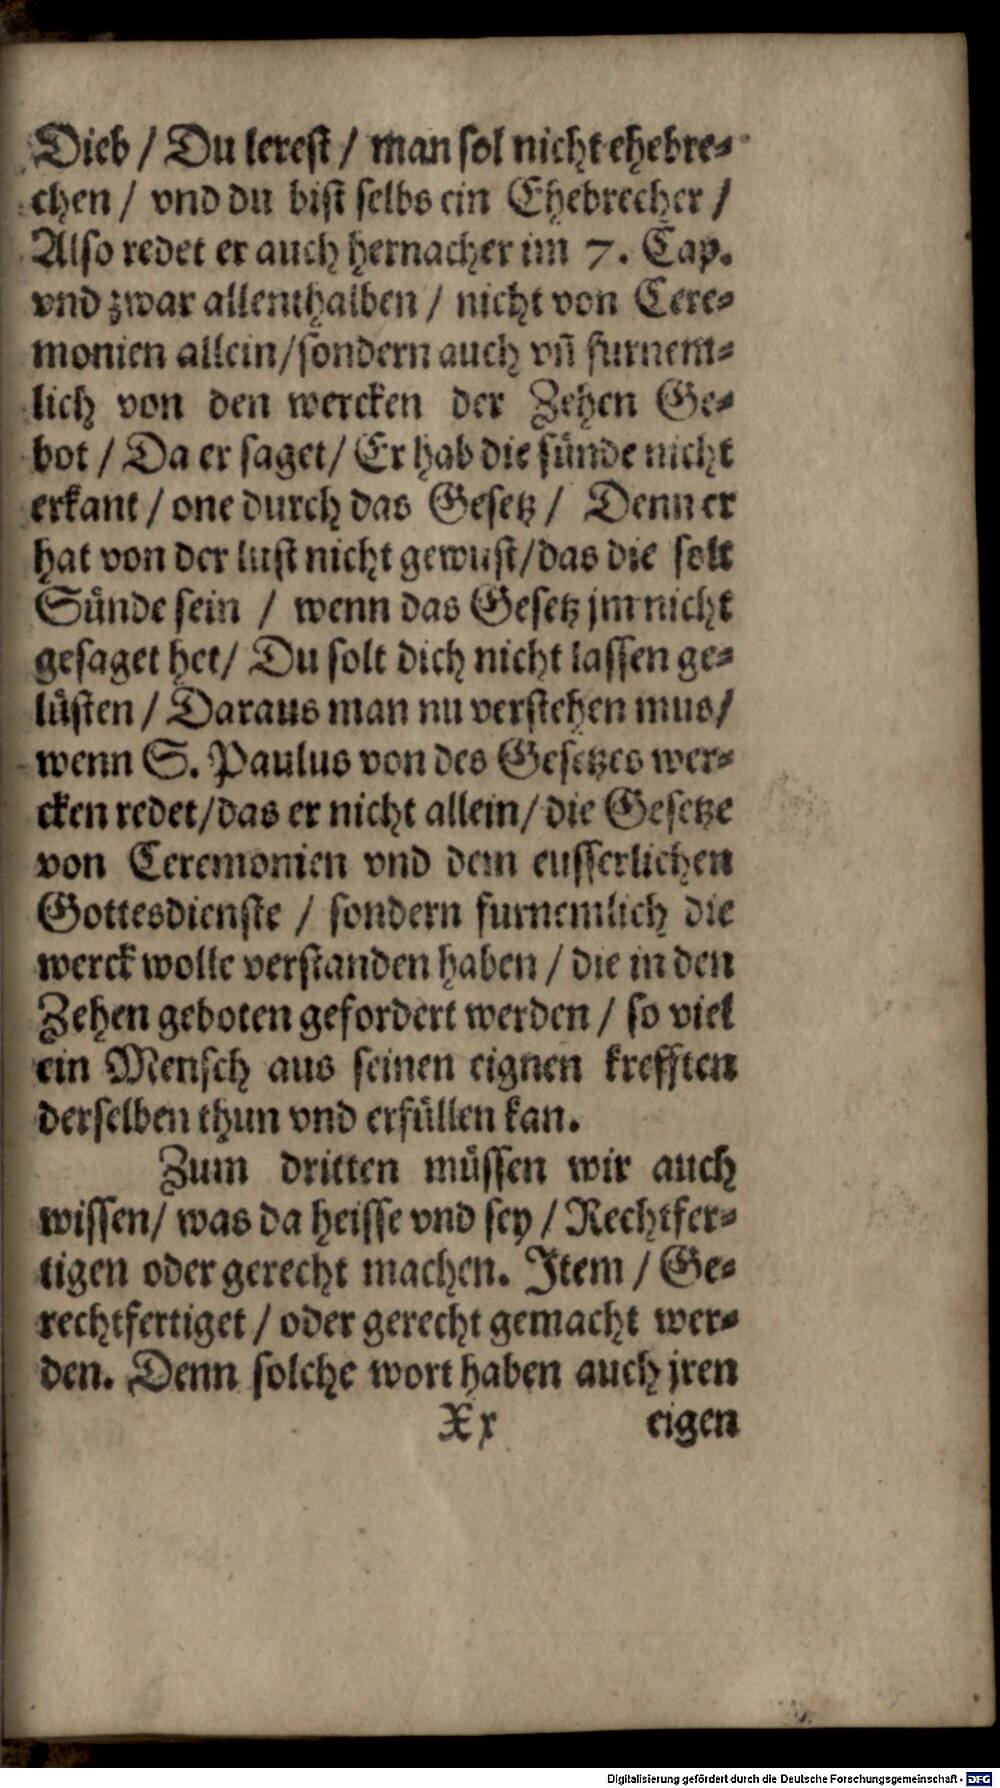 Dieb / Du lerest / man sol nicht ehebre⸗
chen / vnd du bist selbs ein Ehebrecher /
Also redet er auch hernacher im 7. Cap.
vnd zwar allenthalben / nicht von Cere⸗
monien allein/sondern auch vñ furnem⸗
lich von den wercken der Zehen Ge⸗
bot / Da er saget/ Er hab die sünde nicht
erkant / one durch das Gesetz / Denn er
hat von der lust nicht gewust/das die solt
Sünde sein / wenn das Gesetz jm nicht
gesaget het/ Du solt dich nicht lassen ge⸗
lüsten / Daraus man nu verstehen mus/
wenn S. Paulus von des Gesetzes wer⸗
cken redet/das er nicht allein/ die Gesetze
von Ceremonien vnd dem eusserlichen
Gottesdienste / sondern furnemlich die
werck wolle verstanden haben / die in den
Zehen geboten gefordert werden / so viel
ein Mensch aus seinen eignen krefften
derselben thun vnd erfüllen kan.
Zum dritten müssen wir auch
wissen/ was da heisse vnd sey / Rechtfer⸗
tigen oder gerecht machen. Item / Ge⸗
rechtfertiget / oder gerecht gemacht wer⸗
den. Denn solche wort haben auch jren
Xx eigen
Digitalisierung gefördert durch die Deutsche Forschungsgemeinschaft - DFG